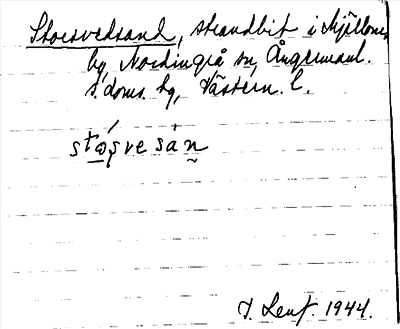 Storsvedsand, strandbit i Mjällom
by, Nordingrå sn, Ångermanl.
s. doms. hg, Västern. l.
stǫșve sán̰
J. Lenf. 1944.